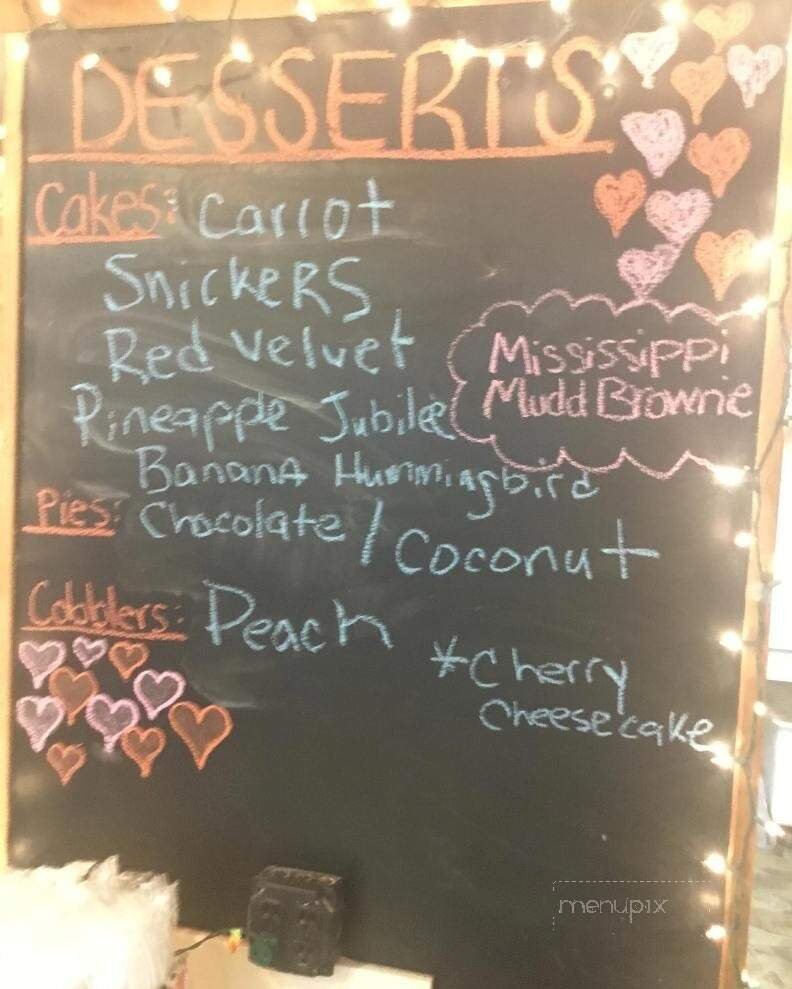 DESSERTS
Cakes: Carrot
Snickers
Red Velvet
Mississippi
Mudd Brownie
Pineapple Jubilee
Banana Hummingbird
Pies: Chocolate / Coconut
Cobblers: Peach
*Cherry
Cheesecake
menupix